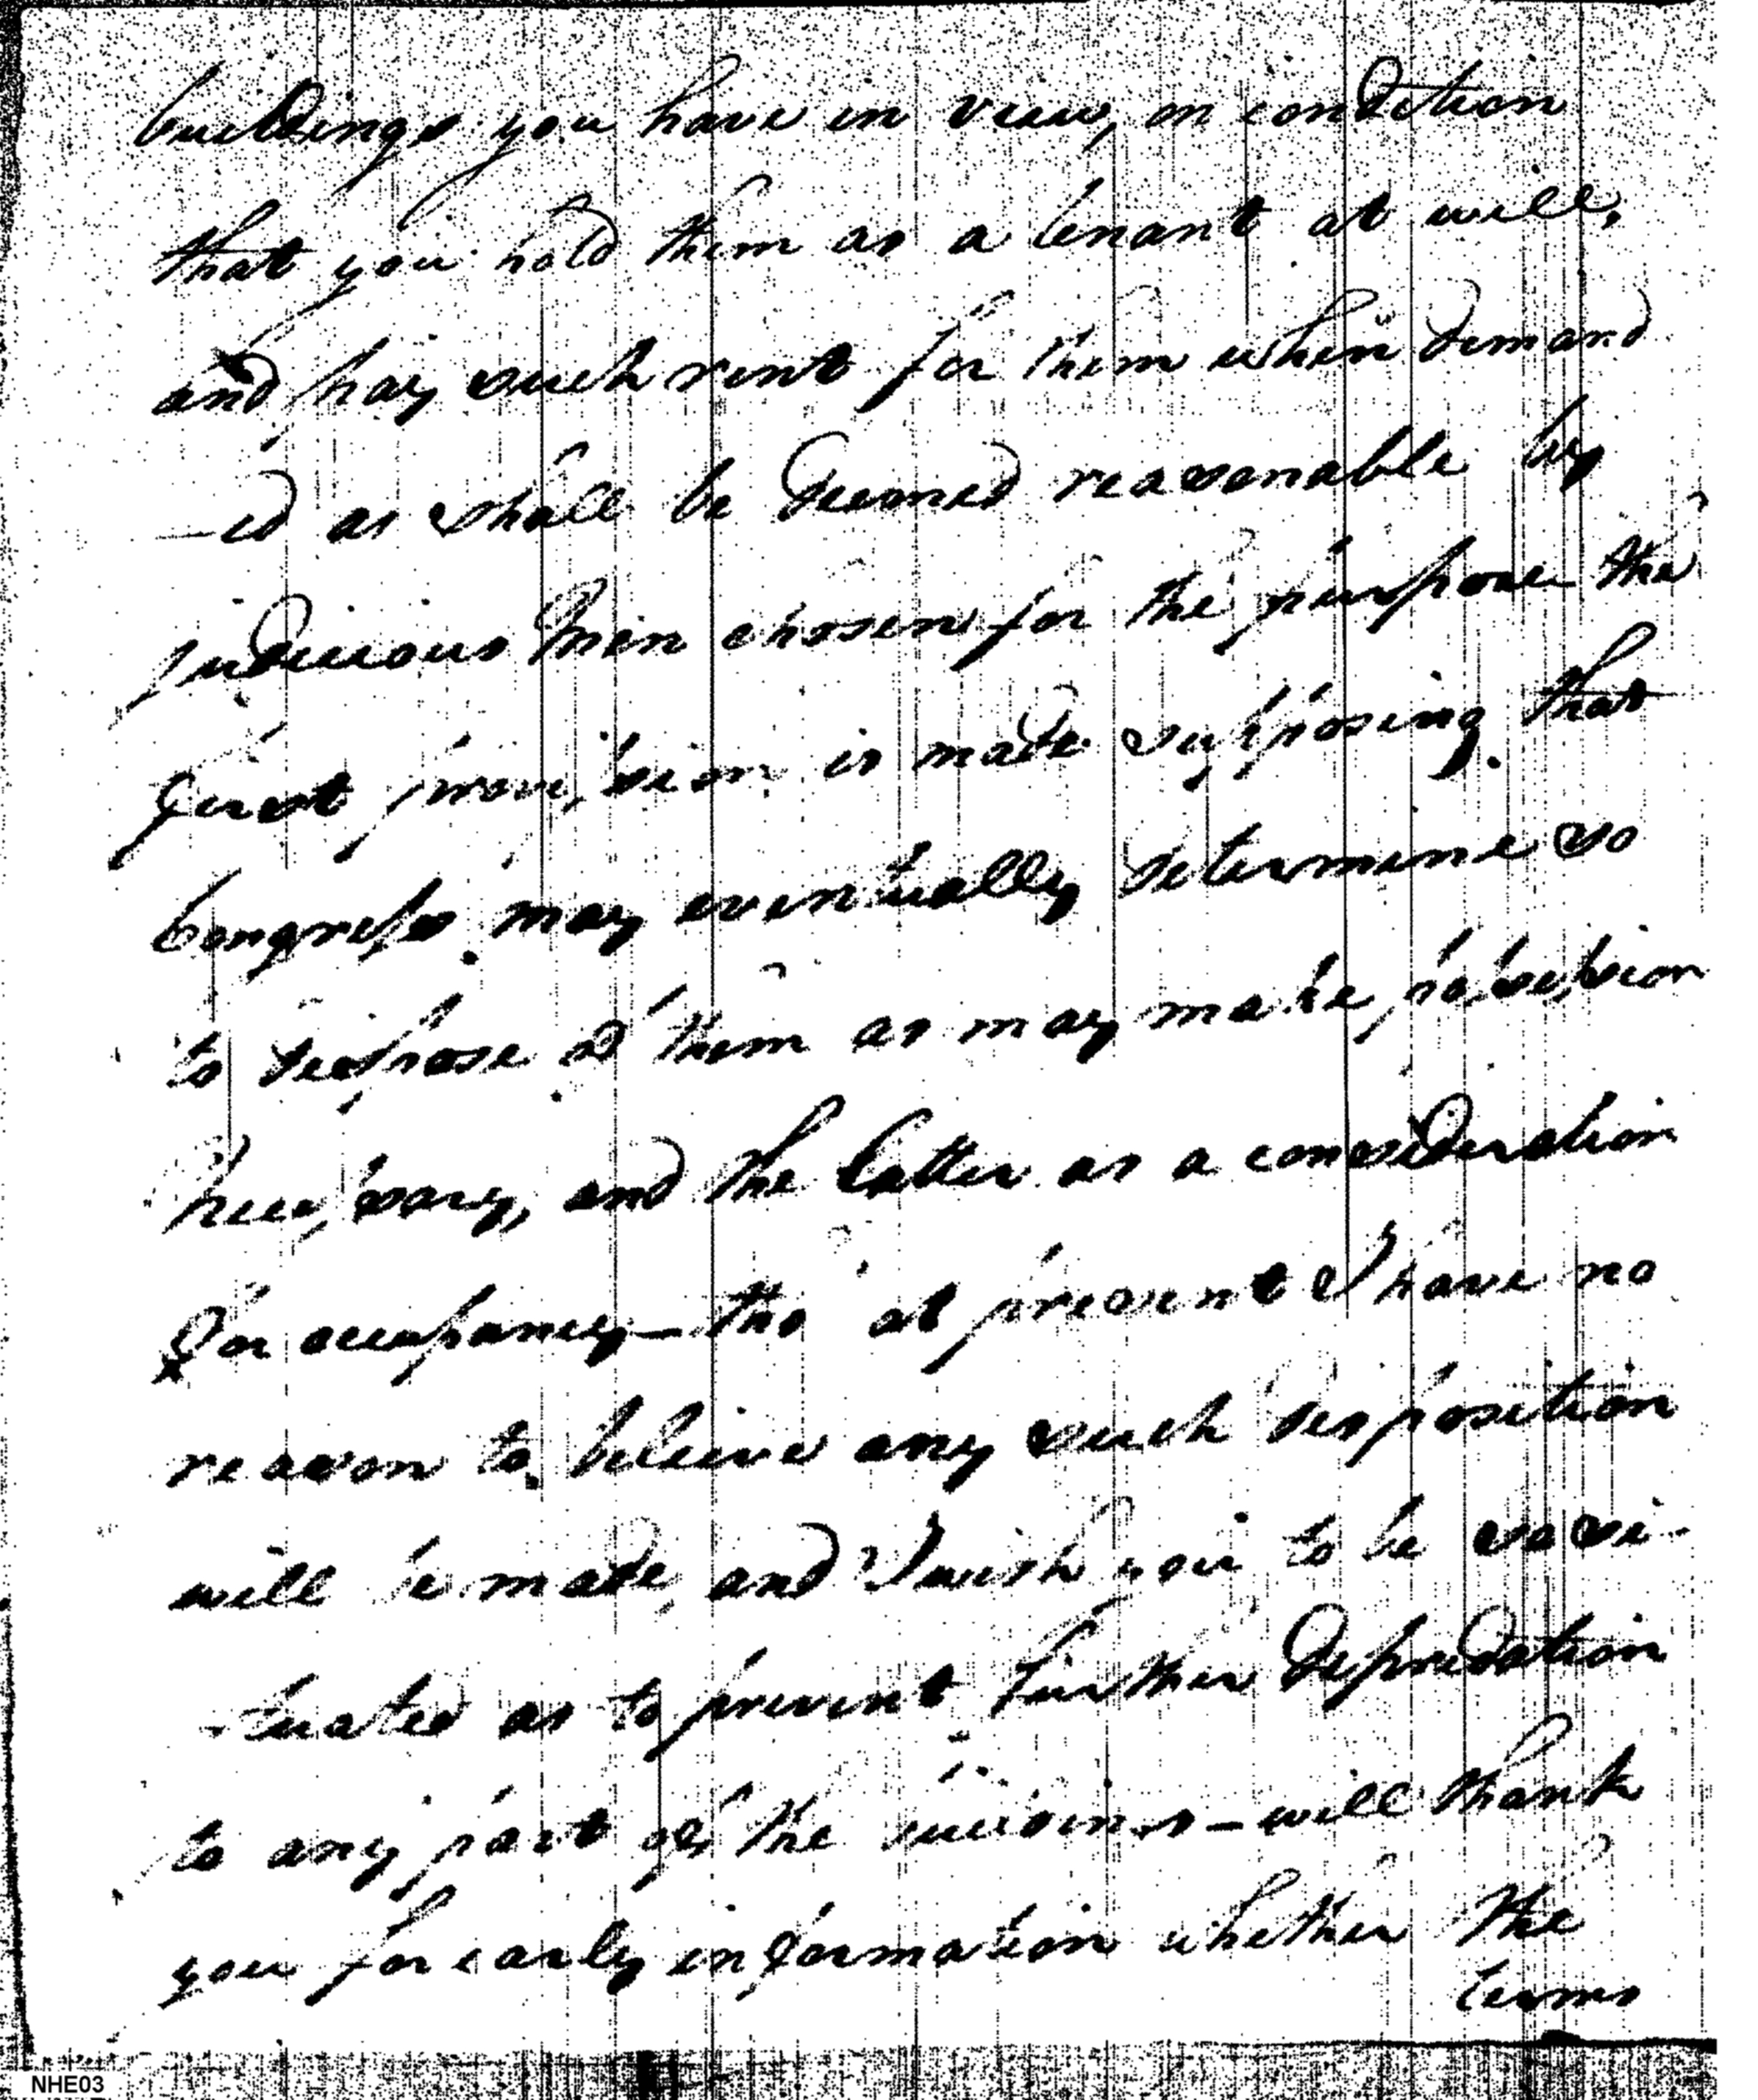 buildings you have in view, on condition
that you hold them as a tenant at will,
and pay such rent for them when demand
—ed as shall be deemed reasonable by
judicious Men chosen for the purpose the
first provission is made supposing that
Congress may eventually determine so
to dispose of them as may make possession
necessary, and the latter as a consideration
for occupancy — tho' at present I have no
reason to believe any such disposition
will be made, and I wish you to be so si-
-tuated as to prevent further depredation
to any part of the buildings — will thank
you for early information whether the
terms
NHE03